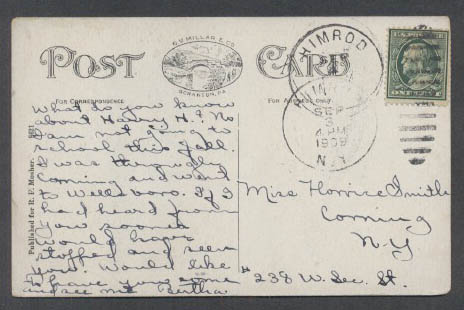 POST CARD
G.V. MILLAR & CO.
SCRANTON, PA.
FOR CORRESPONDENCE
FOR ADDRESS ONLY
HIMROD
SEP
3
4 PM
1909
N.Y.
Published for R. P. Mosher.
What do you know
about Harvey H.? No
I am not going to
school this fall.
I was through
Corning and went
to Wellsboro. If I
had heard from
you sooner
would have
stopped and seen
you. Would like
to have you come
and see me Bertha
Miss Smith
Corning
N-Y
238 W. Sec. St.